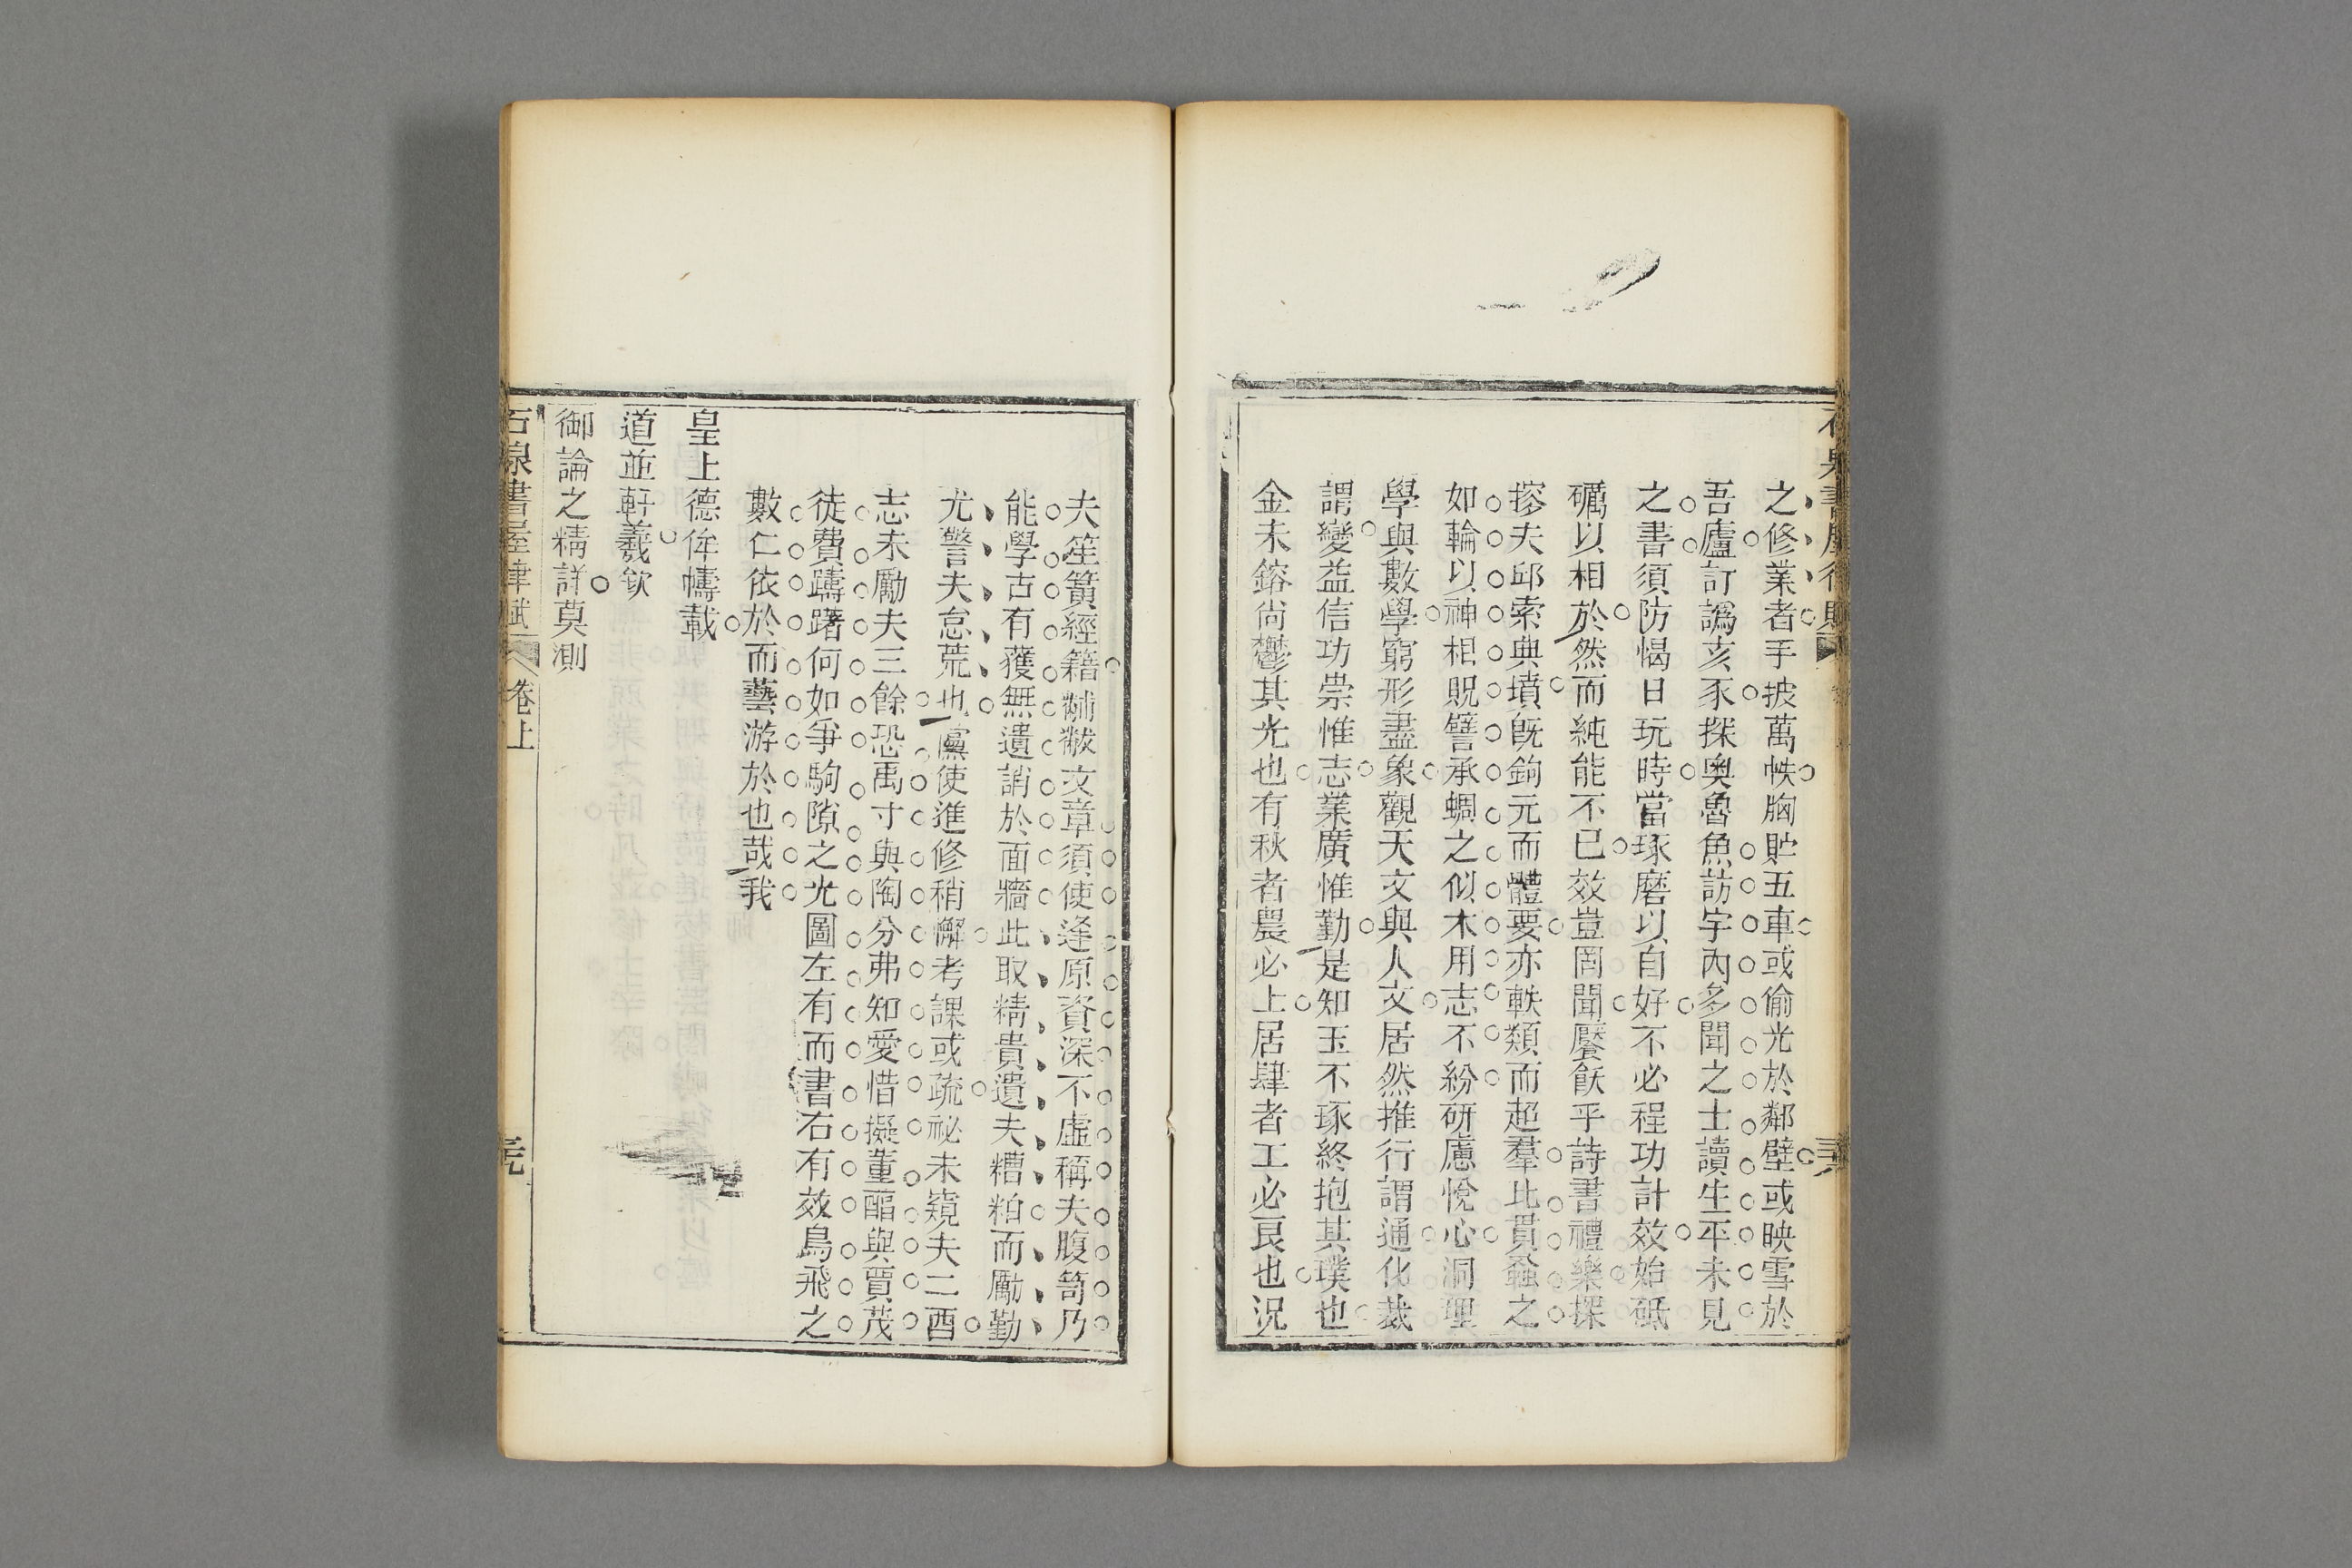 之修業者手披萬帙胸貯五車或偷光於鄰壁或映雪於
吾廬訂譌亥豕探奧魯魚訪宇內多聞之士讀生平未見
之書須防愒日玩時當琢磨以自好不必程功計效始砥
礪以相於然而純能不已效豈罔聞饜飫乎詩書禮樂探
摎夫邱索典墳旣鉤元而體要亦軼類而超羣比貫蝨之
如輪以神相貺譬承蜩之似木用志不紛研慮悅心洞理
學與數學窮形盡象觀天文與人文居然推行謂通化裁
謂變益信功崇惟志業廣惟勤是知玉不琢終抱其璞也
金未鎔尚鬱其光也有秋者農必上居肆者工必良也況
夫笙簧經籍黼黻文章須使逢原資深不虛稱夫腹笥乃
能學古有獲無遺誚於面牆此取精貴遺夫糟粕而勵勤
尤警夫怠荒也儻使進修稍懈考課或疏祕未窺夫二酉
志未勵夫三餘恐禹寸與陶分弗知愛惜擬董醞與賈茂
徒費躊躇何如爭駒隙之光圖左有而書右有效鳥飛之
數仁依於而藝游於也哉我
皇上德侔幬載
道並軒羲欽
御論之精詳莫測
石泉書屋律賦 卷上